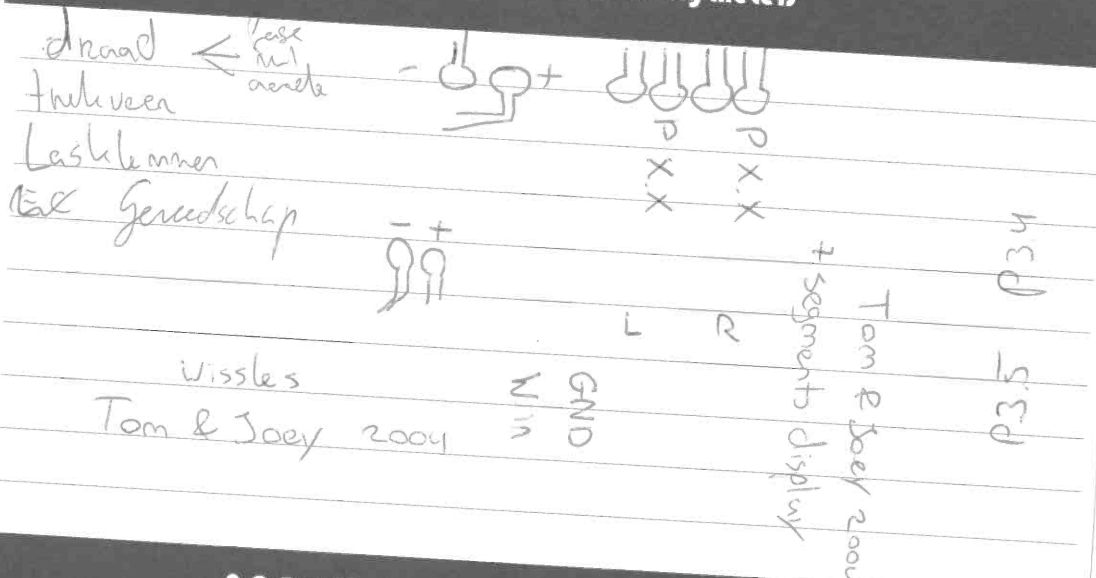 draad < fase
nul
aarde
trekveer
Lasklemmen
Gereedschap
- +
P X.X
P X.X
- +
L R
wissles
Tom & Joey 2004
GND
Vin
7 segments display
Tom & Joey 2004
P3.4
P3.5